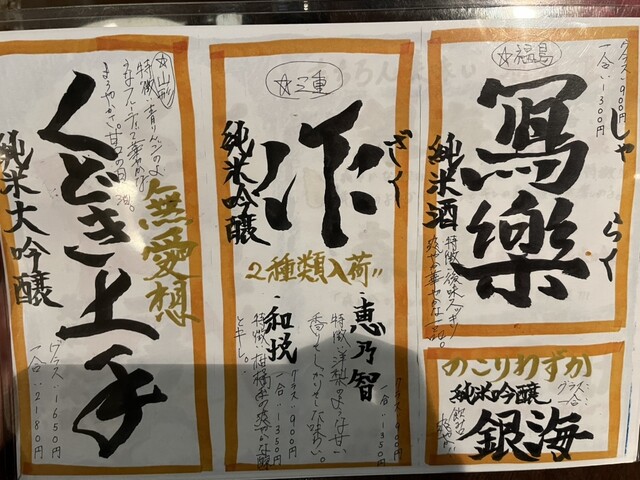 ☆福島
グラス…900円
一合…1300円
しゃらく
寫樂
純米酒
特徴:後味スッキリ
のこりわずか
純米吟醸
銀海
グラス…
一合…
☆三重
ざく
作
純米吟醸
2種類入荷!!
・恵乃智
特徴:洋梨のような甘い
香りとしっかりとした味わい。
グラス…900円
一合…1350円
・和悦
グラス…900円
一合…1350円
特徴:柑橘系の爽やかな酸
とキレ。
☆山形
特徴:青リンゴのよ
うなフルーティで華やかな
くどき上手
無愛想
純米大吟醸
グラス…1650円
一合…2180円